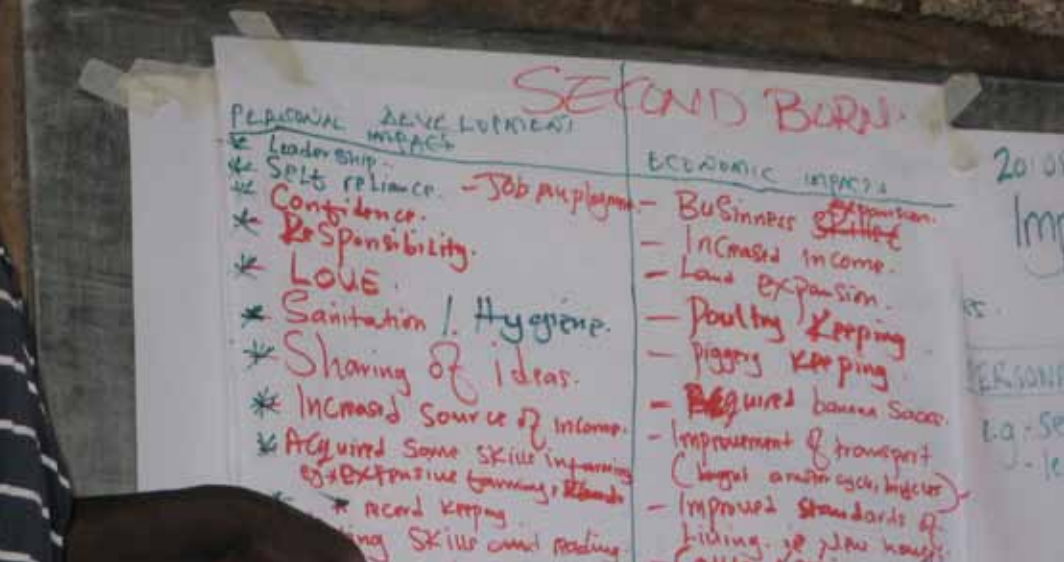 SECOND BURN.
PERSONAL DEVELOPMENT
IMPACT
Leadership.
Self reliance.
Confidence.
ReSponsibility.
LOVE.
Sanitation /. Hygiene.
Sharing of ideas.
Increased Source of income.
Acquired Some Skills in farming
extensive farming,
record keeping
ing Skills and reading.
- Job
ECONOMIC IMPACT
- Businness expansion.
- Increased income.
- Land expansion.
- Poultry Keeping
- piggery Keeping
- banana
- Improvement of transport
- Improved standards of
Living. ie New houses
20
Im
es.
PERSON
e.g - Se
- le